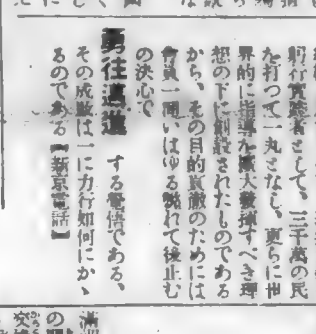 躬行實踐者として、三千萬の民
を打つて一丸となし、更らに世
界的に指導を擴大發揮すべき理
想の下に創設されたものである
から、その目的貫徹のためには
會員一同いはゆる斃れて後止む
の決心で
勇往邁進 する覺悟である、
その成敗は一に力行如何にかゝ
るのである【新京電話】